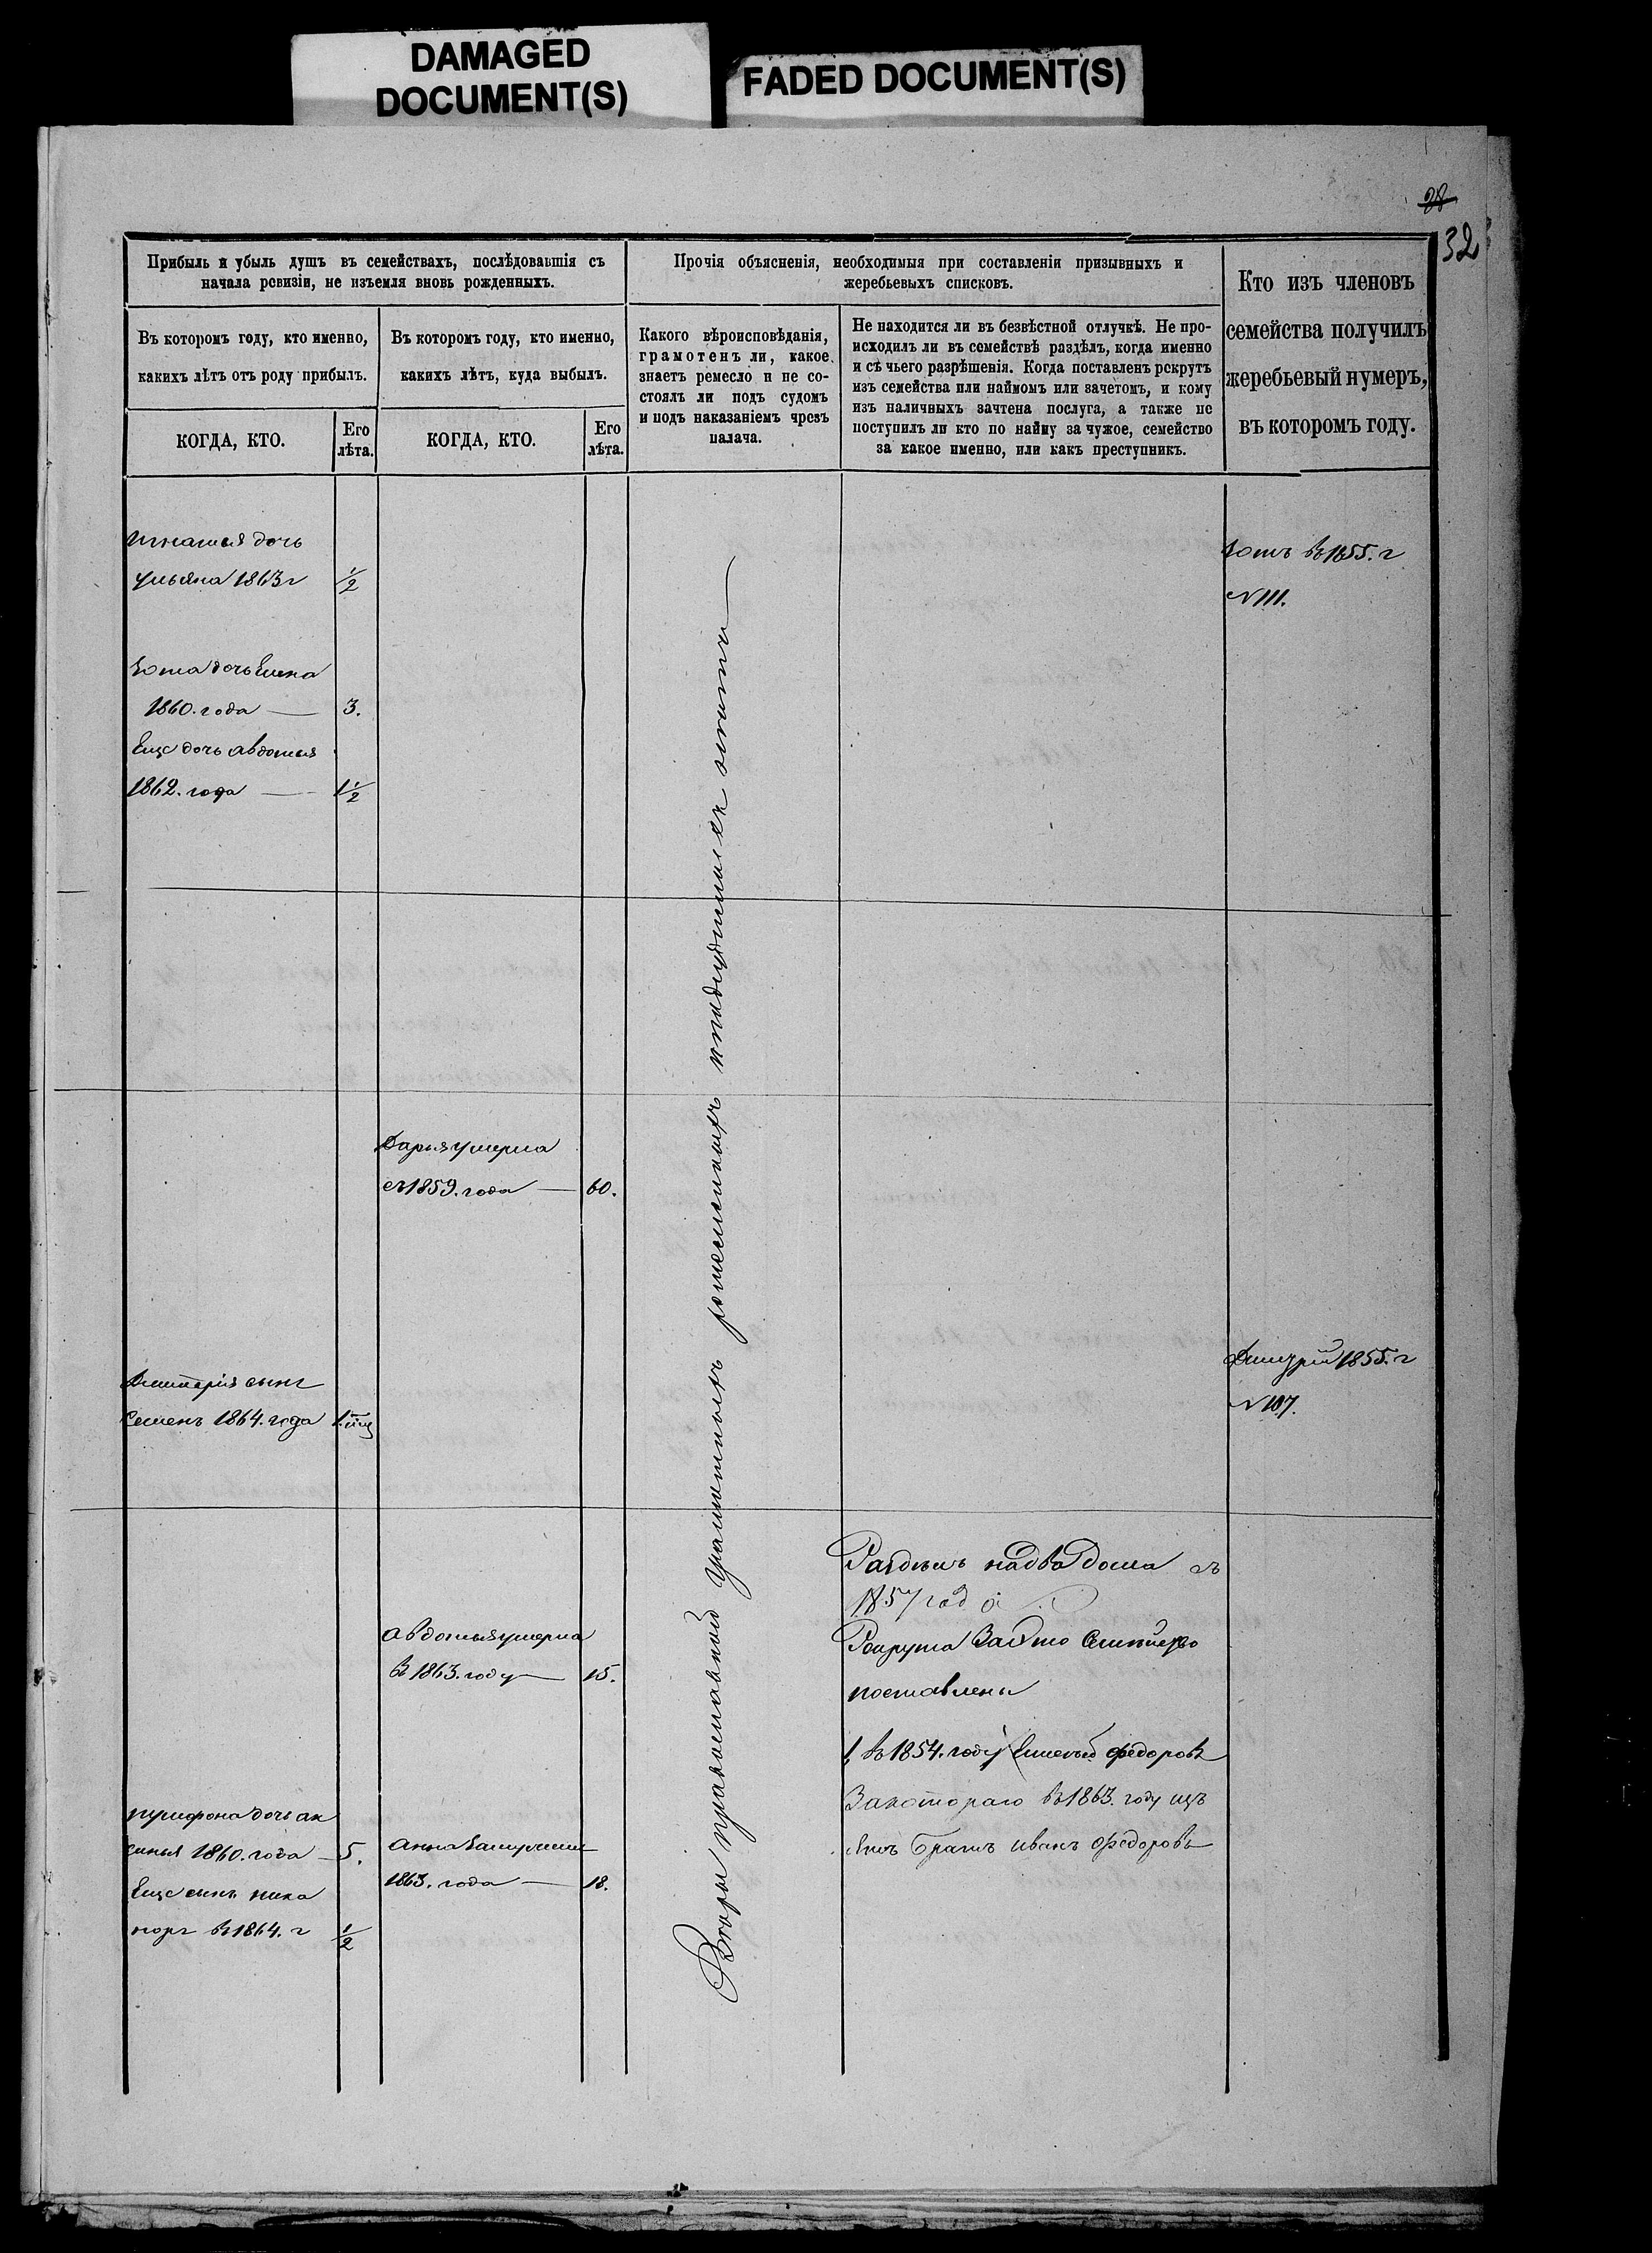 DAMAGED
DOCUMENT(S)
FADED DOCUMENT(S)
28
32
Прибыль и убыль душъ въ семействахъ, послѣдовавшія съ
начала ревизіи, не изъемля вновь рожденныхъ.
Прочія объясненія, необходимыя при составленіи призывныхъ и
жеребьевыхъ списковъ.
Кто изъ членовъ
семейства получилъ
жеребьевый нумеръ,
въ которомъ году.
Въ которомъ году, кто именно,
какихъ лѣтъ отъ роду прибылъ.
Въ которомъ году, кто именно,
какихъ лѣтъ, куда выбылъ.
Какого вѣроисповѣданія,
грамотенъ ли, какое
знаетъ ремесло и не со-
стоялъ ли подъ судомъ
и подъ наказаніемъ чрезъ
палача.
Не находится ли въ безвѣстной отлучкѣ. Не про-
исходилъ ли въ семействѣ раздѣлъ, когда именно
и съ чьего разрѣшенія. Когда поставленъ рекрутъ
изъ семейства или наймомъ или зачетомъ, и кому
изъ наличныхъ зачтена послуга, а также не
поступилъ ли кто по найму за чужое, семейство
за какое именно, или какъ преступникъ.
КОГДА, КТО.
Его
лѣта.
КОГДА, КТО.
Его
лѣта.
Игнатья дочь
ульяна 1863 г 1/2
дочь Елена
1860. года — 3.
Еще дочь авдотья
1862. года — 1 1/2
въ 1855. г
N 111.
Дарья умерла
съ 1859. года — 60.
Дмитрія сынъ
Семенъ 1864. года 1.
Дмитрій 1855. г
N 107.
Вѣры православной
Раздѣлъ на два дома съ
1857 года
авдотья умерла
в 1863. году — 15.
Рекрута
поставлены
1, въ 1854. году федоровъ
За котораго въ 1863. году
братъ иванъ федоровъ
трифона дочь ак
синья 1860. года — 5.
Еще сынъ ника
норъ въ 1864. г 1/2
анна
1863. года — 18.